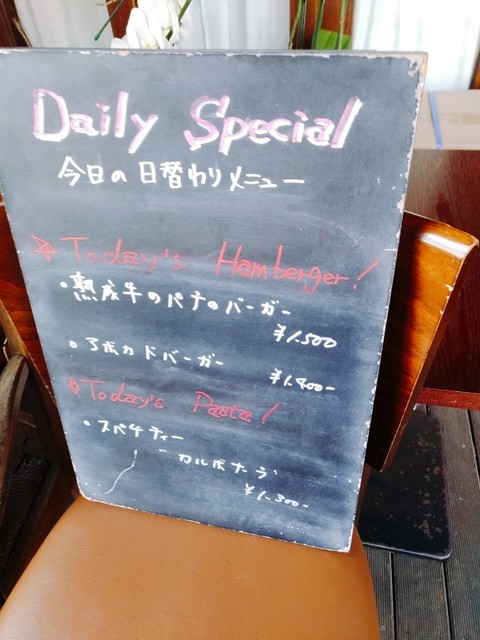 Daily Special
今日の日替わりメニュー
☆Today's Hamberger!
・熟成牛のパテのバーガー
¥1.500
・アボカドバーガー
¥1.400-
☆Today's Pasta!
・スパゲティー
カルボナーラ
¥1.300-